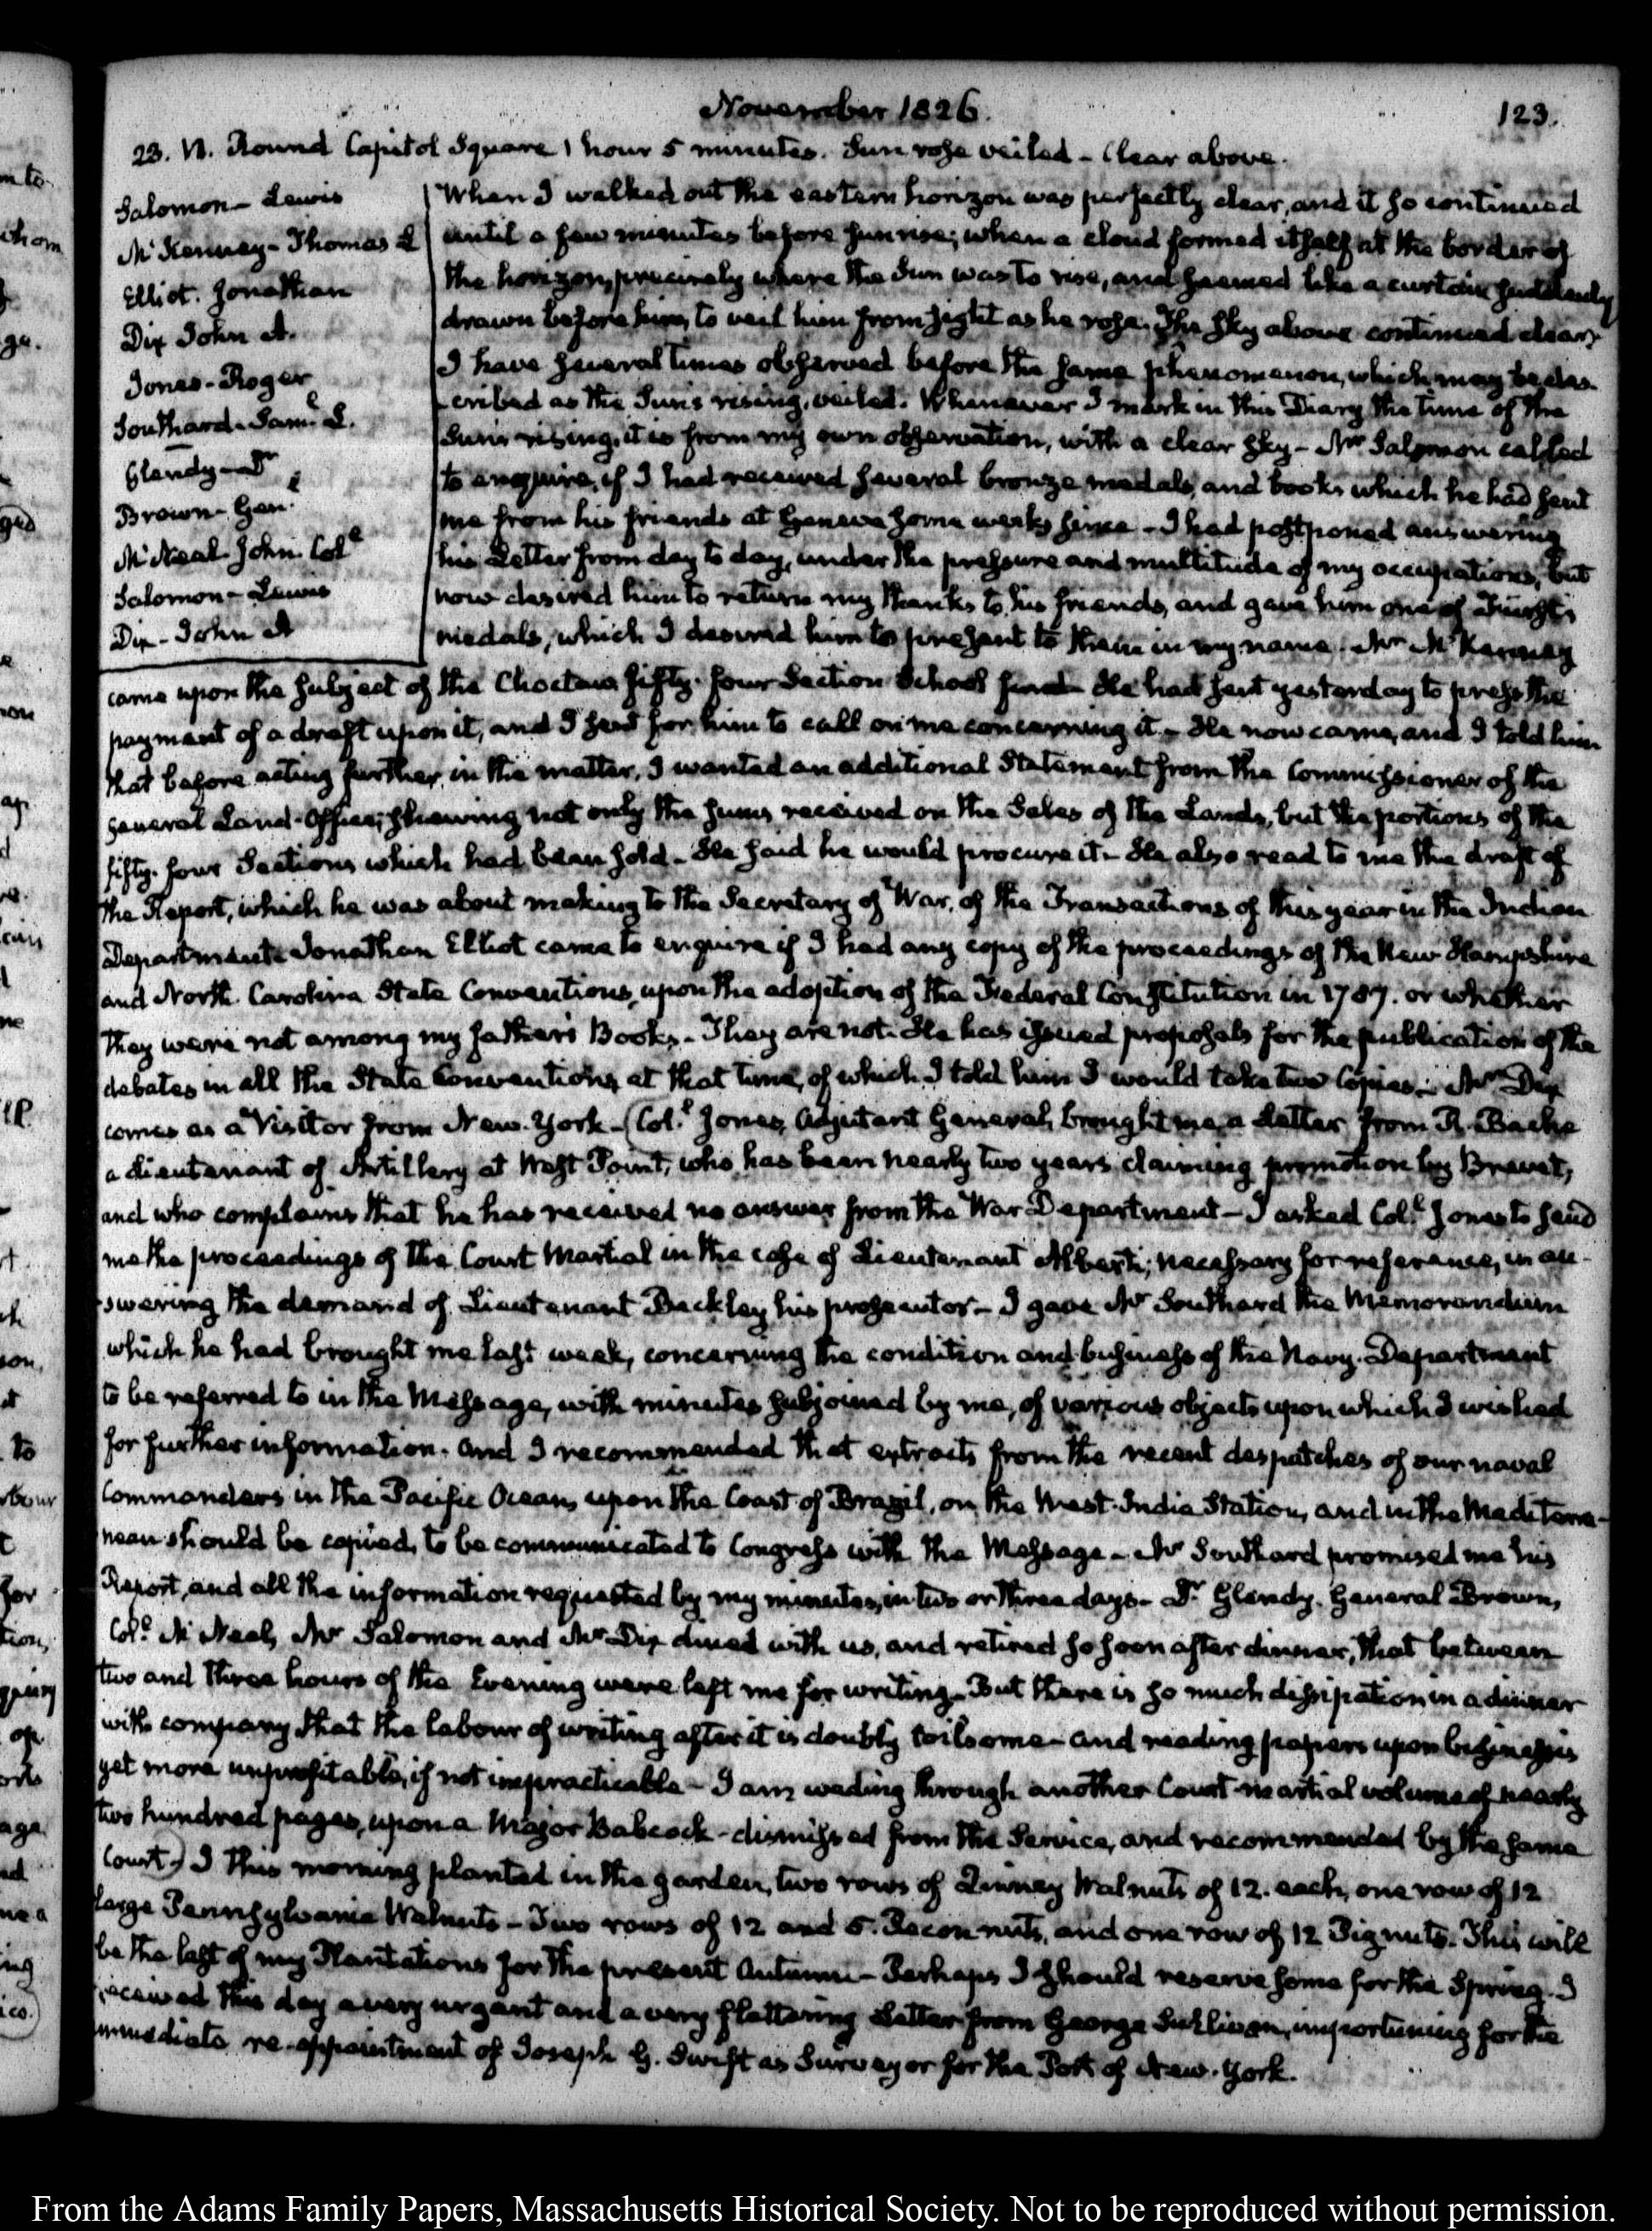 November 1826.
123.
23. VI. Round Capitol Square 1 hour 5 minutes. Sun rose veiled - Clear above.
Salomon - Lewis
McKenney - Thomas L
Elliot. Jonathan
Dix John A.
Jones - Roger
Southard. Saml. L.
Glendy - Dr
Brown - Genl.
McNeal John. Col.
Salomon - Lewis
Dix - John A
When I walked out the eastern horizon was perfectly clear, and it so continued
until a few minutes before sunrise; when a cloud formed itself at the border of
the horizon, precisely where the Sun was to rise, and seemed like a curtain suddenly
drawn before him, to veil him from sight as he rose. The sky above continued clear.
I have several times observed before the same phenomenon, which may be des-
cribed as the Sun's rising, veiled. Whenever I mark in this Diary the time of the
Sun's rising, it is from my own observation, with a clear sky - Mr Salomon called
to enquire, if I had received several bronze medals, and books which he had sent
me from his friends at Geneva some weeks since - I had postponed answering
his Letter from day to day, under the pressure and multitude of my occupations, but
now desired him to return my thanks to his friends, and gave him one of Furst's
medals, which I desired him to present to them in my name. Mr McKenney
came upon the subject of the Choctaw fifty-four Section School fund - He had sent yesterday to press the
payment of a draft upon it, and I sent for him to call on me concerning it - He now came, and I told him
that before acting further in the matter, I wanted an additional Statement from the Commissioner of the
General Land-Office; shewing not only the sums received on the Sales of the Lands, but the portions of the
fifty-four Sections which had been sold - He said he would procure it - He also read to me the draft of
the Report, which he was about making to the Secretary of War, of the Transactions of this year in the Indian
Department - Jonathan Elliot came to enquire if I had any copy of the proceedings of the New Hampshire
and North Carolina State Conventions, upon the adoption of the Federal Constitution in 1787. or whether
they were not among my father's Books - They are not. He has issued proposals for the publication of the
debates in all the State Conventions, at that time, of which I told him I would take two Copies - Mr Dix
comes as a Visitor from New-York - (Coll. Jones, Adjutant General, brought me, a Letter from R. Bache
a Lieutenant of Artillery at West Point, who has been nearly two years claiming promotion by Brevet,
and who complains that he has received no answer from the War Department - I asked Coll. Jones to send
me the proceedings of the Court Martial in the case of Lieutenant Alberti; necessary for reference, in an-
swering the demand of Lieutenant Beckley his prosecutor - I gave Mr Southard the Memorandum
which he had brought me last week, concerning the condition and business of the Navy Department
to be referred to in the Message, with minutes subjoined by me, of various objects upon which I wished
for further information. And I recommended that extracts from the recent despatches of our naval
Commanders in the Pacific Ocean, upon the Coast of Brazil, on the West-India Station, and in the Mediterra-
nean should be copied, to be communicated to Congress with the Message - Mr Southard promised me his
Report, and all the information requested by my minutes, in two or three days - Dr. Glendy. General Brown,
Coll. McNeal, Mr Salomon and Mr Dix dined with us, and retired so soon after dinner, that between
two and three hours of the Evening were left me for writing - But there is so much dissipation in a dinner
with company that the labour of writing after it is doubly toilsome - and reading papers upon business is
yet more unprofitable, if not impracticable - I am wading through another Court-martial volume of nearly
two hundred pages, upon a Major Babcock - dismissed from the Service, and recommended by the same
Court.) I this morning planted in the garden, two rows of Quincy Walnuts of 12. each, one row of 12
large Pennsylvania Walnuts - Two rows of 12 and 5. Pecon nuts, and one row of 12 Pignuts. This will
be the last of my Plantations for the present Autumn - Perhaps I should reserve some for the Spring. I
received this day a very urgent and a very flattering Letter from George Sullivan, importuning for the
immediate re-appointment of Joseph G. Swift as Surveyor for the Port of New-York.
From the Adams Family Papers, Massachusetts Historical Society. Not to be reproduced without permission.